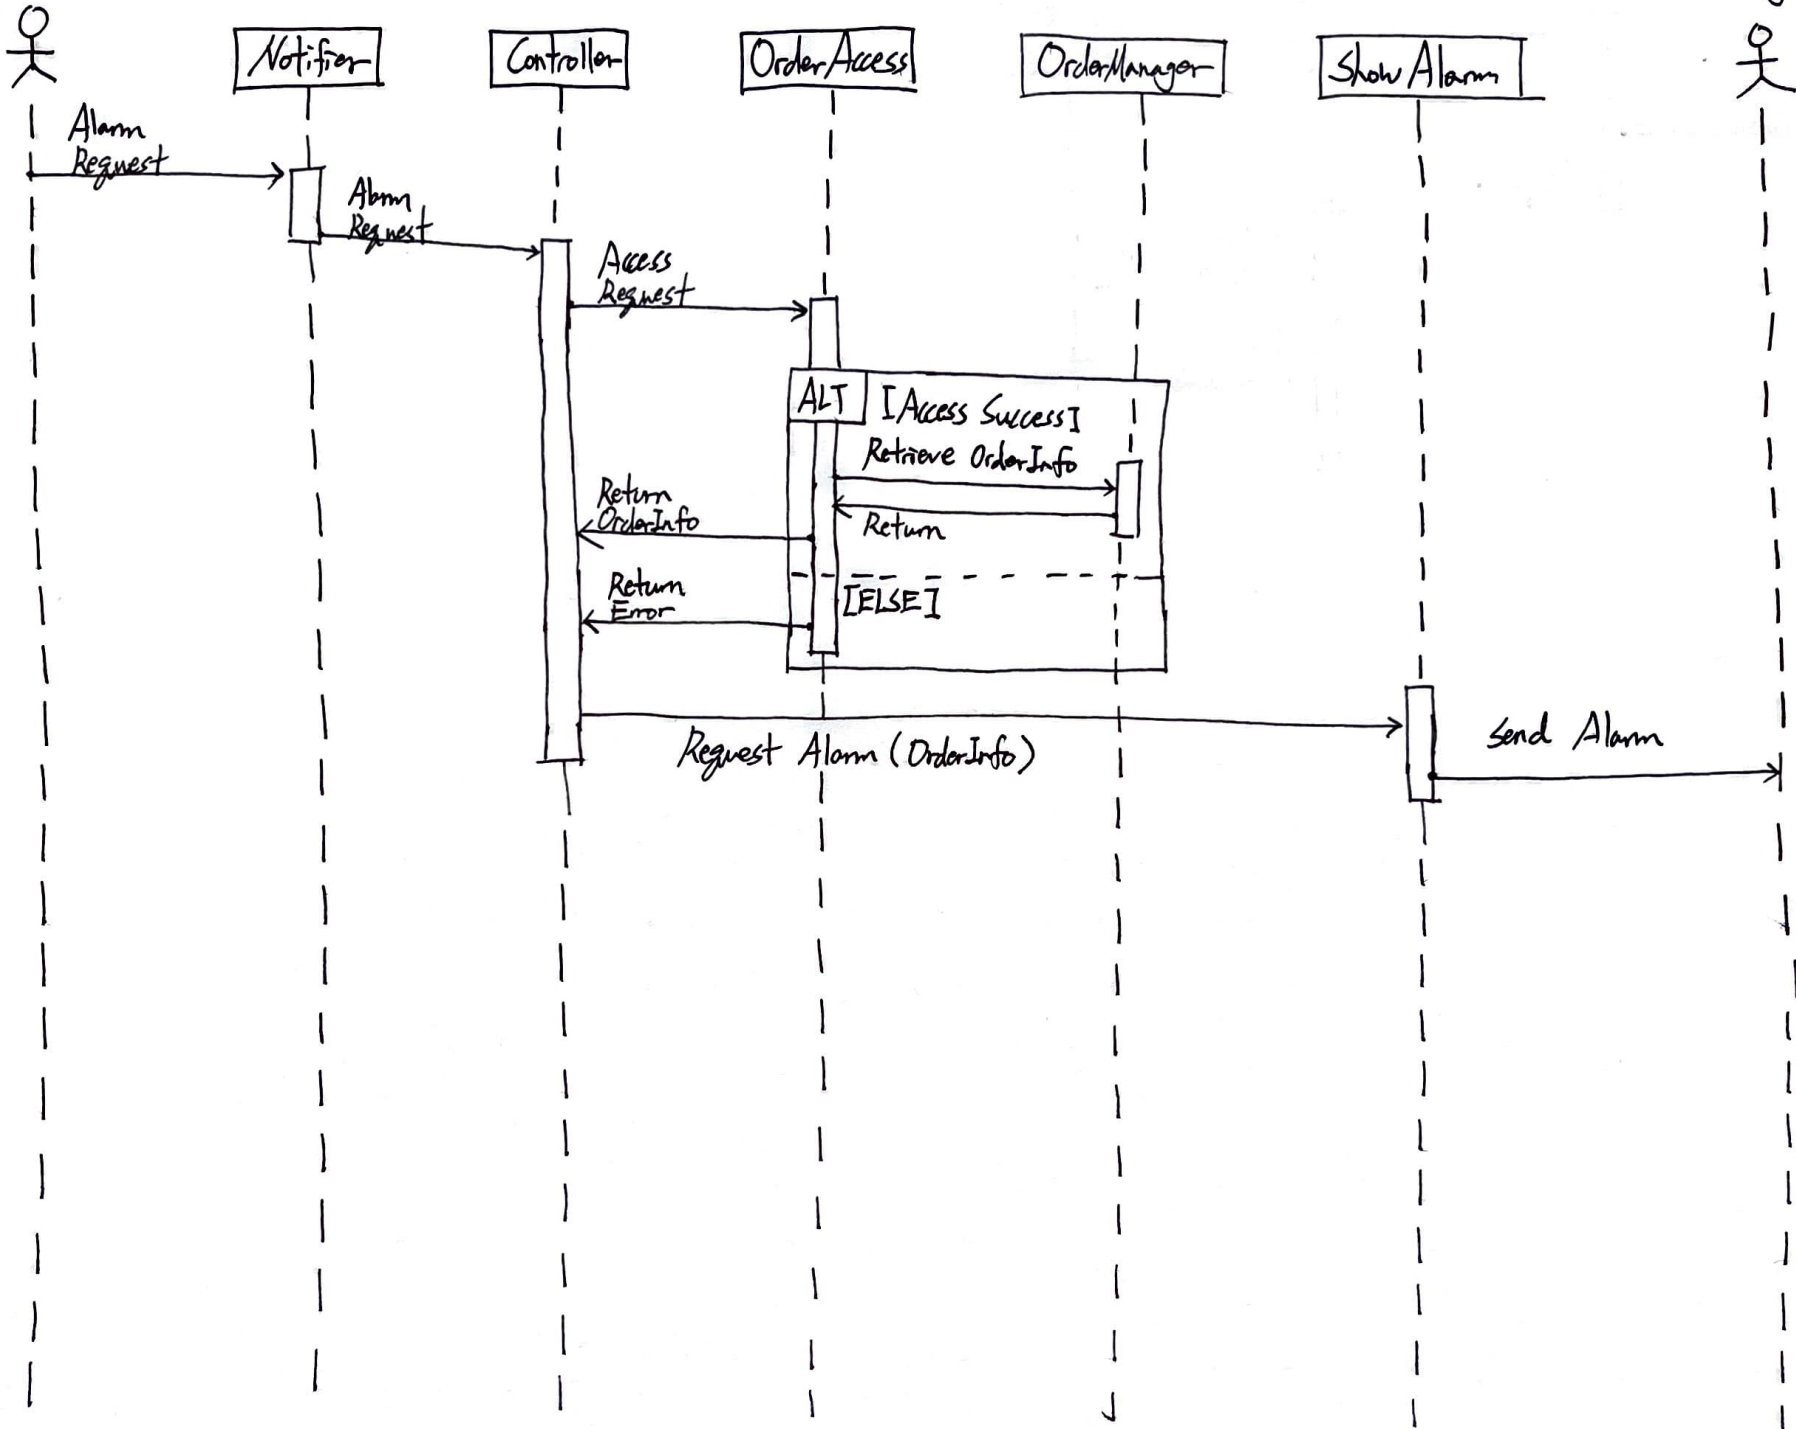 Notifier
Controller
OrderAccess
OrderManager
Show Alarm
Alarm
Request
Alarm
Request
Access
Request
ALT
[Access Success]
Retrieve OrderInfo
Return
OrderInfo
Return
Return
Error
[ELSE]
Request Alarm (OrderInfo)
Send Alarm